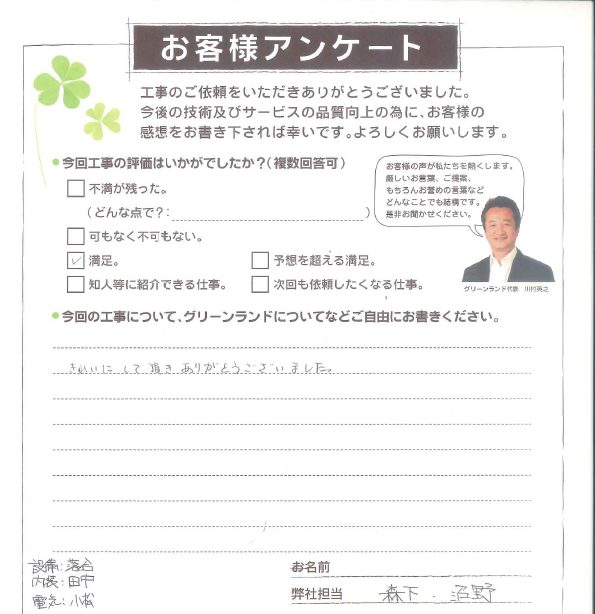 お客様アンケート
工事のご依頼をいただきありがとうございました。
今後の技術及びサービスの品質向上の為に、お客様の
感想をお書き下されば幸いです。よろしくお願いします。
今回工事の評価はいかがでしたか?(複数回答可)
お客様の声が私たちを熱くします。
厳しいお言葉、ご提案、
もちろんお誉めの言葉など
どんなことでも結構です。
是非お聞かせください。
不満が残った。
(どんな点で?: )
可もなく不可もない。
満足。 予想を超える満足。
知人等に紹介できる仕事。 次回も依頼したくなる仕事。
グリーンランド代表 川村英之
今回の工事について、グリーンランドについてなどご自由にお書きください。
きれいにして頂きありがとうございました。
設備:落合
内装:田中
電気:小松
お名前
弊社担当 森下.沼野